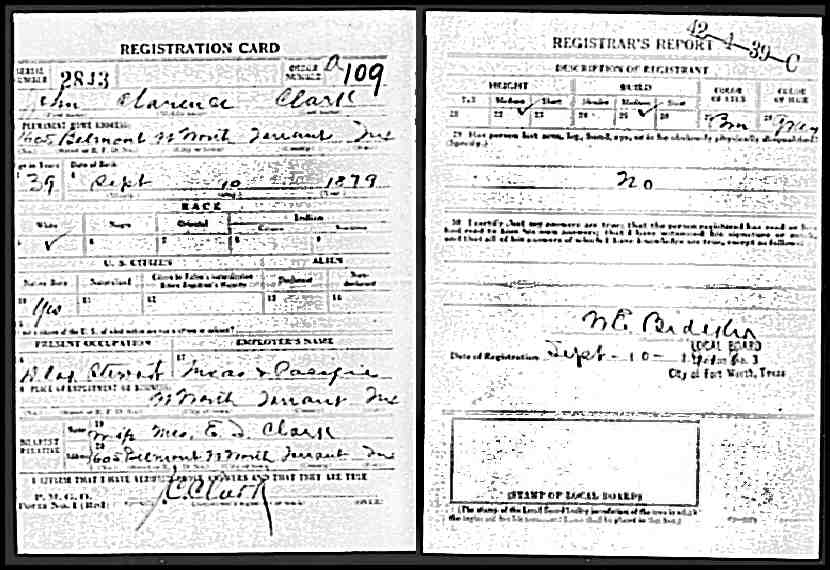 REGISTRATION CARD
SERIAL NUMBER 2843 ORDER NUMBER A 109
John Clarence Clark
PERMANENT HOME ADDRESS:
1605 Belmont Ft Worth Tarrant Tex
Age in Years Date of Birth
39 Sept 10 1879
RACE
White Negro Oriental Indian
Citizen
✓
5 6 7 8 9
U. S. CITIZEN ALIEN
Native Born Naturalized Citizen by Father's Naturalization Before Registrant's Majority Declarant Non-declarant
10 11 12 13 14
Yes
PRESENT OCCUPATION EMPLOYER'S NAME
17
Texas & Pacific
PLACE OF EMPLOYMENT OR BUSINESS:
Ft Worth Tarrant Tex
NEAREST RELATIVE
Name 19 Mrs. Clark
Address 20 1605 Belmont Ft Worth Tarrant Tex
I AFFIRM THAT I HAVE VERIFIED ABOVE ANSWERS AND THAT THEY ARE TRUE
P. M. G. O.
Form No. 1 (Red)
J C Clark
REGISTRAR'S REPORT
42-4-39-C
DESCRIPTION OF REGISTRANT
HEIGHT BUILD COLOR OF EYES COLOR OF HAIR
Tall Medium Short Slender Medium Stout
21 22 ✓ 23 24 25 ✓ 26 27 Brn 28 Grey
29 Has person lost arm, leg, hand, eye, or is he obviously physically disqualified?
(Specify.)
No
30 I certify that my answers are true; that the person registered has read or has
had read to him his own answers; that I have witnessed his signature or mark,
and that all of his answers of which I have knowledge are true, except as follows:
LOCAL BOARD
Date of Registration Sept - 10 -
City of Fort Worth, Texas
(STAMP OF LOCAL BOARD)
(The stamp of the Local Board having jurisdiction of the area in which
the registrant has his permanent home shall be placed in this box.)